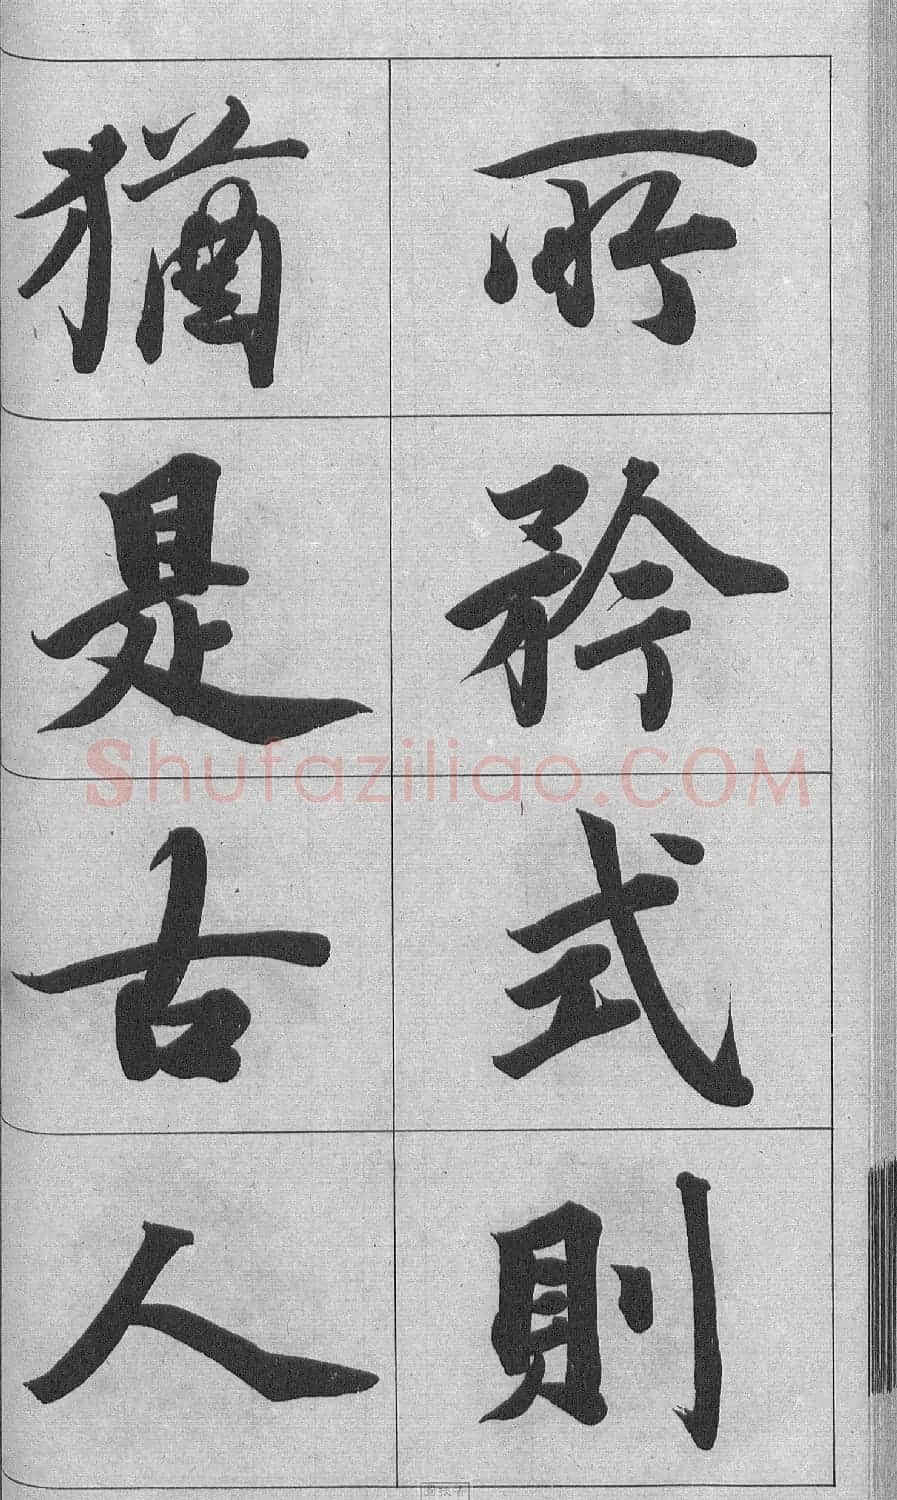 所矜式則
猶是古人
Shufaziliao.COM